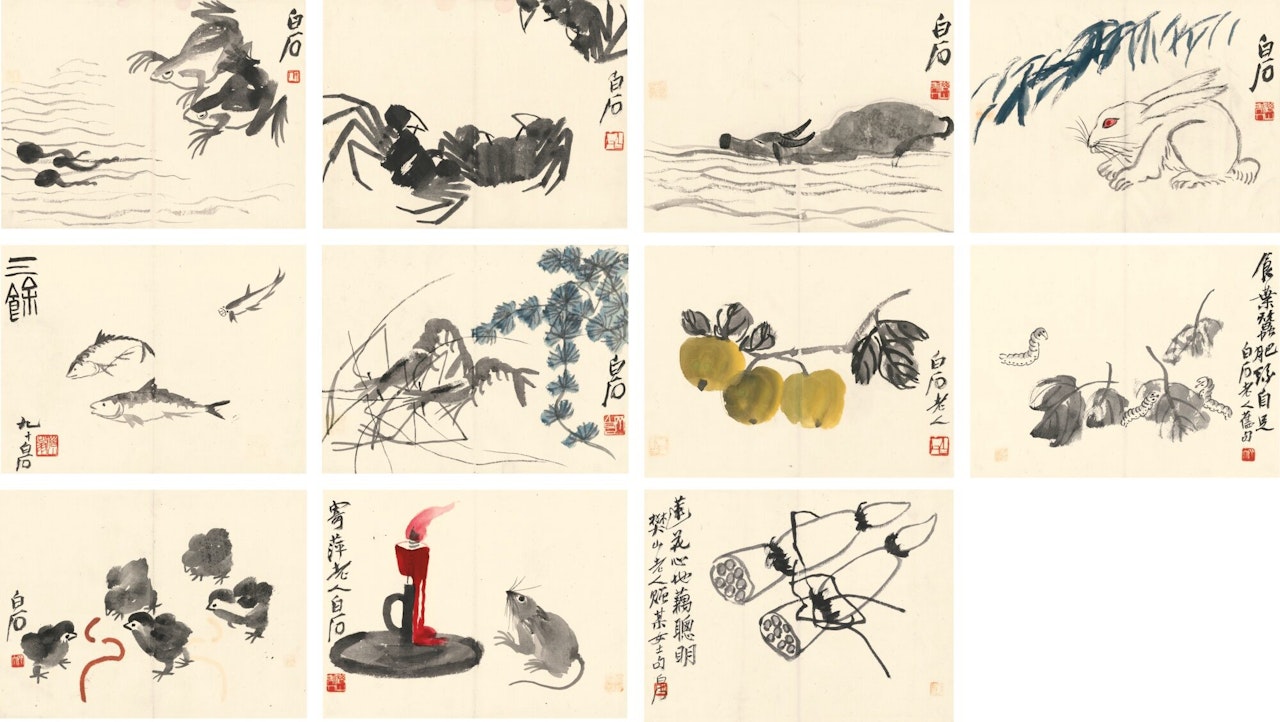 白石
白石
白石
白石
三餘
九十白石
白石
白石老人
食葉蠶肥絲自足
白石老人舊句
白石
寄萍老人白石
蓮花心地藕聰明
樊山老人贈某女士句 白石